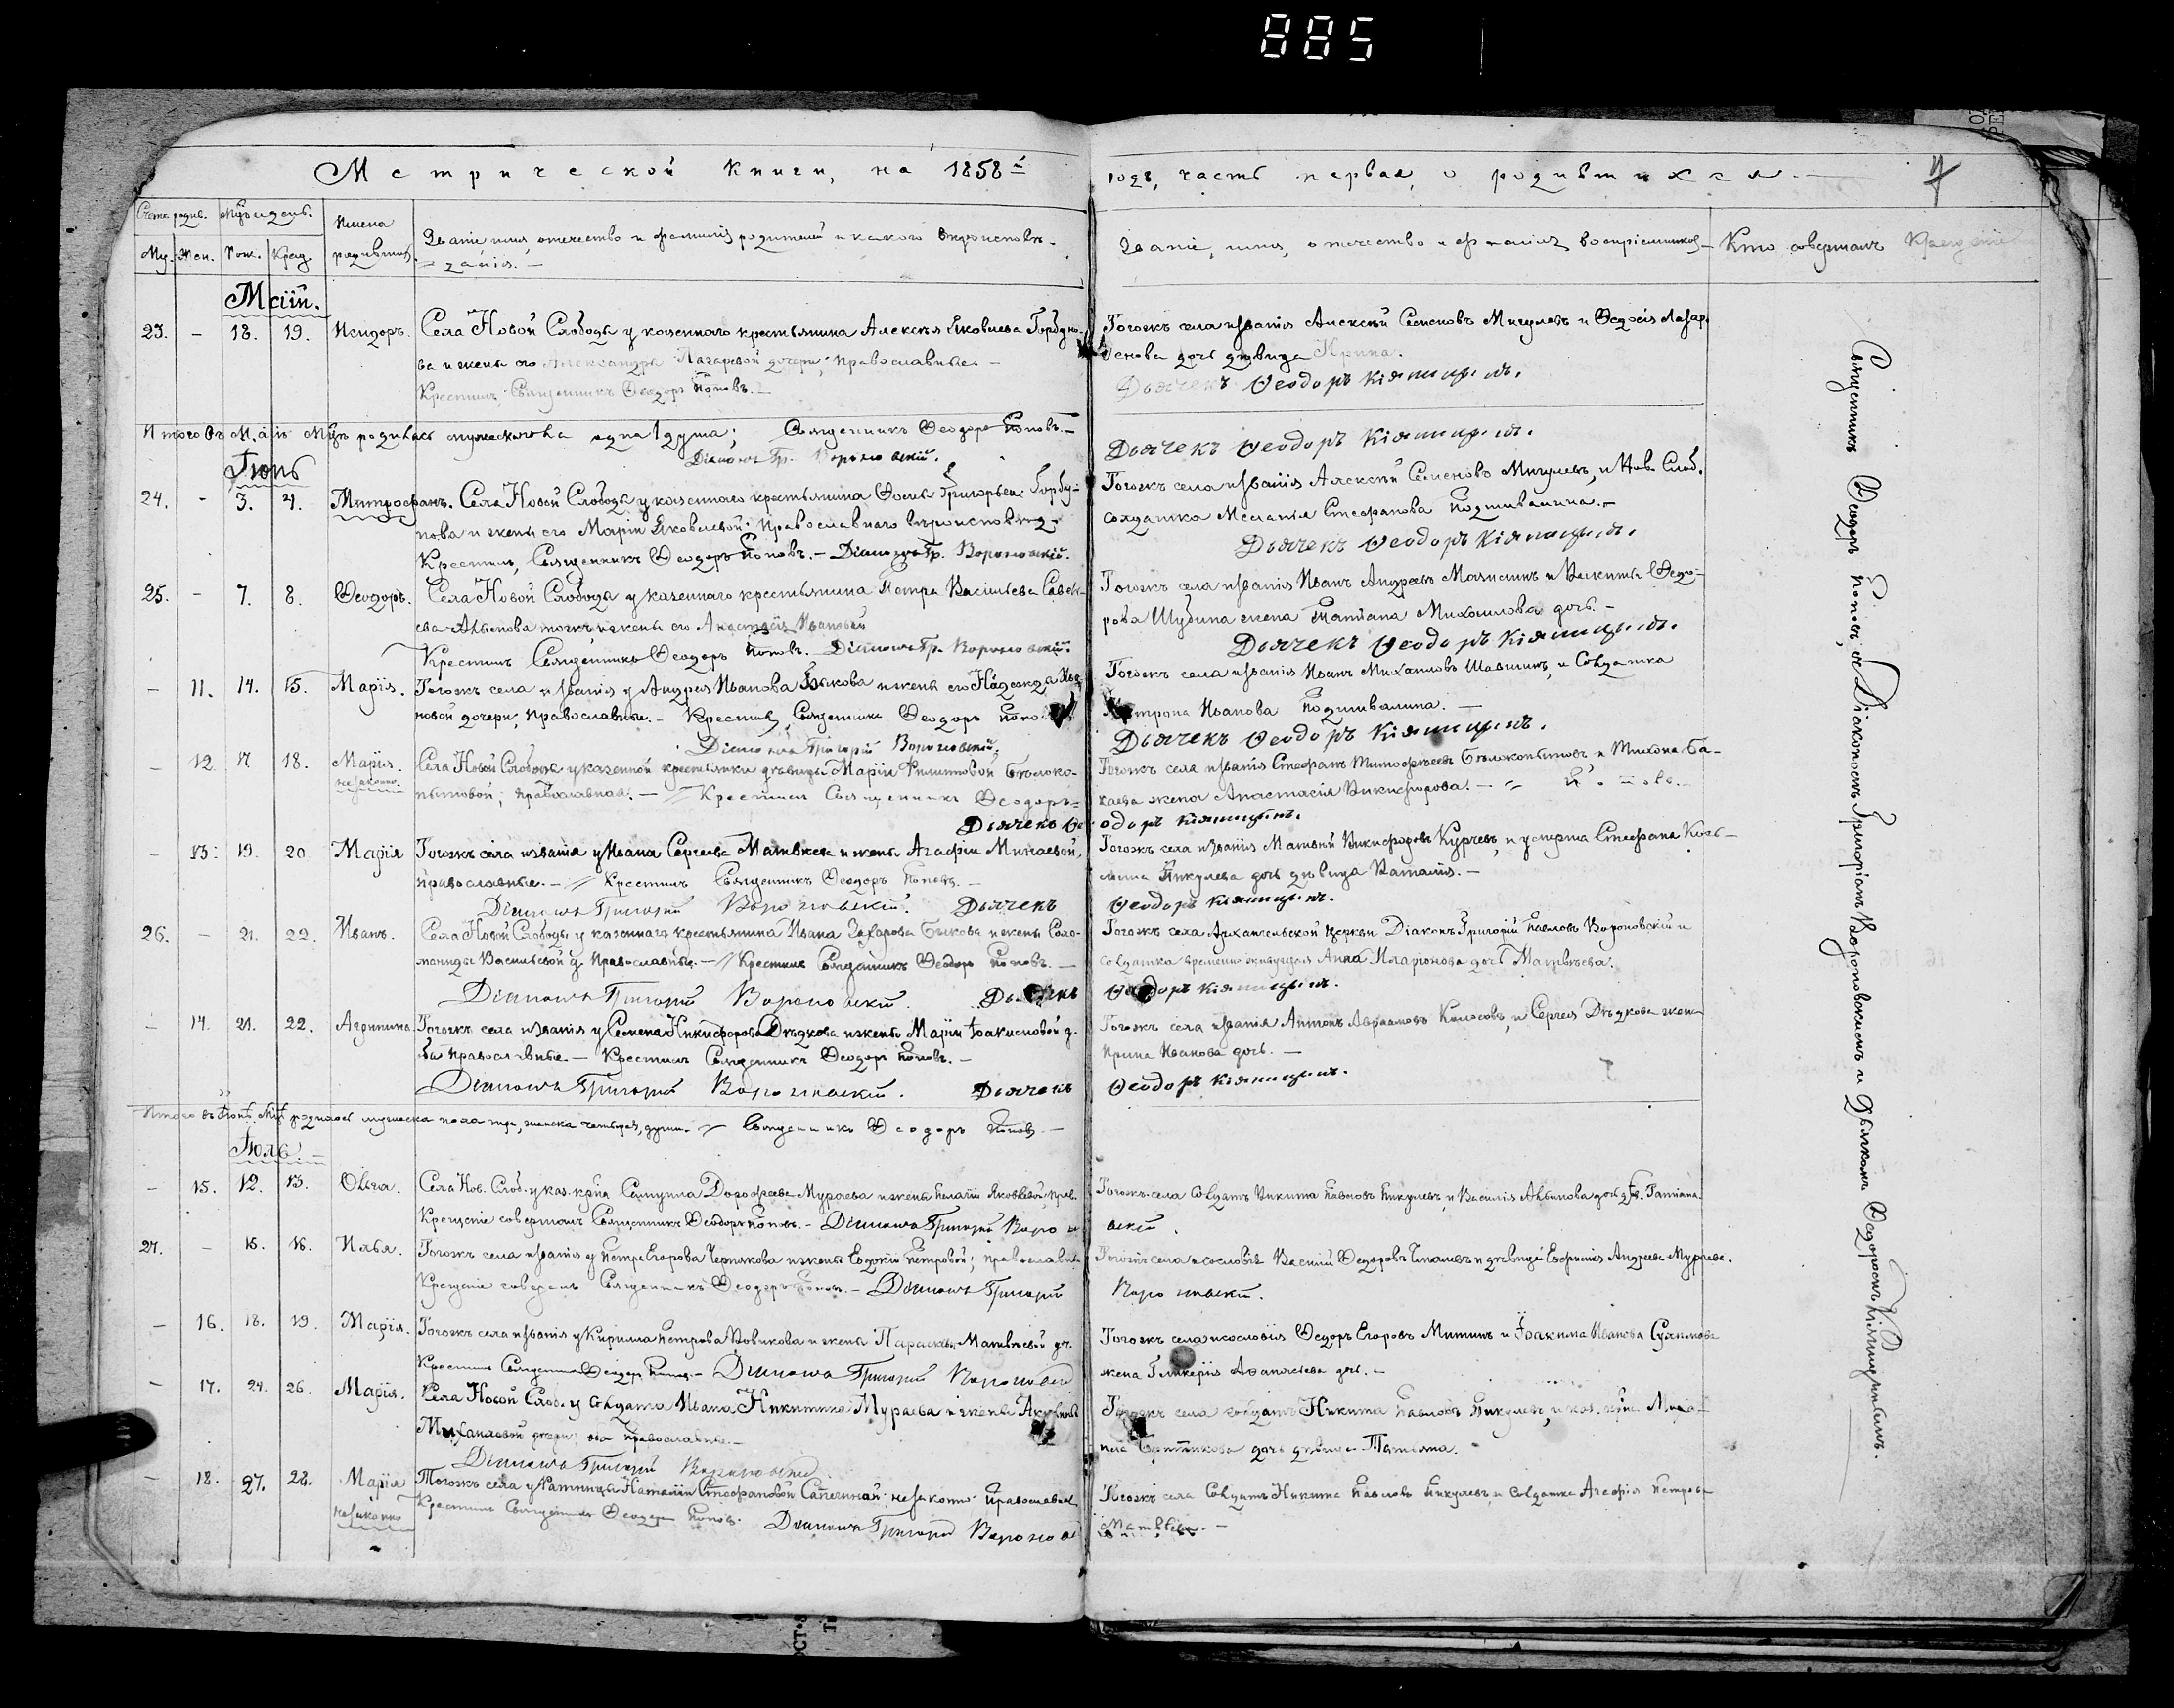 885
Метрической книги, на 1858й
годъ, часть первая, о родившихся.
7
Счетъ родив.
Мцъ и день.
Имена родившихъ.
Званіе имя, отечество и фамилія родителей и какого вѣроисповѣ-
данія.
Званіе, имя, отечество и фамилія воспріемниковъ
Кто совершалъ Крещеніе
Му. Жен. Рож. Крещ.
Маій.
23. - 18. 19. Исидоръ. Села Новой Слободы у казеннаго крестьянина Алексѣя Яковлева Горбуно-
ва и жены его Александры Лазаревой дочери; православные. -
Крестилъ, Священникъ Ѳеодоръ Поповъ. -
Тогожъ села и званія Алексѣй Семеновъ Мигулевъ и Ѳедосія Лазар.
дочь дѣвица Ирина.
Дьячекъ Ѳеодоръ Кіяницынъ.
Итого въ Маіѣ Мцѣ родилась мужескаго одна 1 душа; Священникъ Ѳеодоръ Поповъ. -
Діаконъ Гр. Вороновскій.
Дьячекъ Ѳеодоръ Кіяницынъ.
Іюнь
24. - 3. 4. Митрофанъ. Села Новой Слободы у казеннаго крестьянина Ѳомы Григорьева Горбу-
нова и жены его Маріи Яковлевой. Православнаго вѣроисповѣд-
Крестилъ, Священникъ Ѳеодоръ Поповъ. - Діаконъ Гр. Вороновскій.
Тогожъ села и званія Алексѣй Семеновъ Мигулевъ, и Нов. Слоб.
солдатка Меланія Стефанова Подшивалина. -
Дьячекъ Ѳеодоръ Кіяницынъ.
25. - 7. 8. Ѳеодоръ. Села Новой Слободы у казеннаго крестьянина Петра Васильева Савель-
ева тожъ и жены его Анастасіи Ивановой
Крестилъ Священникъ Ѳеодоръ Поповъ. Діаконъ Гр. Вороновскій.
Тогожъ села и званія Иванъ Андреевъ и Никиты Ѳедо-
рова Шубина жена Татіана Михаилова дочь. -
Дьячекъ Ѳеодоръ Кіяницынъ.
- 11. 14. 15. Марія. Тогожъ села и званія у Андрея Иванова Быкова и жены его Надежды Ива
новой дочери, православные. - Крестилъ, Священникъ Ѳеодоръ Поповъ
Діаконъ Григорій Вороновскій.
Тогожъ села и званія Иванъ Михаиловъ Шавшинъ, и Солдатка
Матрона Иванова Подшивалина. -
Дьячекъ Ѳеодоръ Кіяницынъ.
- 12 17 18. Марія. Села Новой Слободы у казенной крестьянки дѣвицы Маріи Филиповой Бѣлоко-
незаконно. пытовой; православная. - Крестилъ Священникъ Ѳеодоръ
Тогожъ села и званія Стефанъ Тимофѣевъ Бѣлокопытовъ, и Тихона Ба-
каева жена Анастасія Никифорова. - Поповъ. -
Дьячекъ Ѳеодоръ Кіяницынъ.
- 13. 19. 20 Марія Тогожъ села и званія у Ивана Сергеева Матвѣева и жены Агафіи Минаевой,
православные. - Крестилъ Священникъ Ѳеодоръ Поповъ. -
Діаконъ Григорій Вороновскій. Дьячекъ
Тогожъ села и званія Матвѣй Никифоровъ Курчевъ, и умерша Стефана Козь-
мина Пикулева дочь дѣвица Наталія. -
Ѳеодоръ Кіяницынъ.
26. - 21. 22. Иванъ. Села Новой Слободы у казеннаго крестьянина Ивана Захарова Быкова и жены Соло-
маниды Васильевой д. Православные. - Крестилъ Священникъ Ѳеодоръ Поповъ. -
Діаконъ Григорій Вороновскій. Дьячекъ
Тогожъ села Архангельской церкви Діаконъ Григорій Павловъ Вороновскій и
солдатка временно живущая Анна Иларіонова дочь Матвѣева.
Ѳеодоръ Кіяницынъ.
- 14. 21. 22. Агрипина. Тогожъ села и званія у Семена Никифорова Дѣдкова и жены Маріи Іоакимовой д.
оба Православные. - Крестилъ Священникъ Ѳеодоръ Поповъ. -
Діаконъ Григорій Вороновскій. Дьячекъ
Тогожъ села и званія Антонъ Авраамовъ Колосовъ, и Сергея Дѣдкова жена
Ирина Иванова дочь. -
Ѳеодоръ Кіяницынъ.
Итого въ Іюнѣ Мцѣ родилось мужеска пола три, женска четыре, души. Священникъ Ѳеодоръ Поповъ -
Іюль. -
- 15. 12. 13. Ольга. Села Нов. Слоб. у каз. крна Самуила Дорофеева Мураева и жены Пелагіи Яковлевой, прав.
Крещеніе совершалъ Священникъ Ѳеодоръ Поповъ. - Діаконъ Григорій Вороно
Тогожъ села Солдатъ Никита Павловъ Пикулевъ, и Василія дочь Татіана.
вскій.
27. - 15. 16. Илья. Тогожъ села и званія у Петра Егорова Чернякова и жены Евдокіи Петровой; православные
Крещеніе соверш. Священникъ Ѳеодоръ Поповъ. - Діаконъ Григорій
Тогожъ села и сословія Василій Ѳедоровъ и дѣвица Евфимія Андреева Мураева.
Вороновскій.
- 16. 18. 19. Марія. Тогожъ села и званія у Кирила Петрова Новикова и жены Параскевы Матвѣевой дч.
Крестилъ Священникъ Ѳеодоръ Поповъ. - Діаконъ Григорій Вороновскій
Тогожъ села и сословія Ѳедоръ Егоровъ Митинъ и Іоакима Иванова
жена Гликерія Аѳанасьева дочь. -
- 17. 24. 26. Марія. Села Новой Слоб. у Солдата Ивана Никитина Мураева и жены Акулины
Михаиловой дочери оба православные. -
Діаконъ Григорій Вороновскій
Тогожъ села солдатъ Никита Павловъ Пикулевъ, и каз. крна Миха-
ила дочь дѣвица Татьяна.
- 18. 27. 28. Марія Тогожъ села у Наталіи Стефановой незаконно Православная
незаконно Крестилъ Священникъ Ѳеодоръ Поповъ. Діаконъ Григорій Вороновскій
Тогожъ села Солдатъ Никита Павловъ Пикулевъ, и Солдатка Агафія Петрова
Матвѣева. -
Священникъ Ѳеодоръ Поповъ, съ Діакономъ Григоріемъ Вороновскимъ и Дьячкомъ Ѳедоромъ Кіяницынымъ.